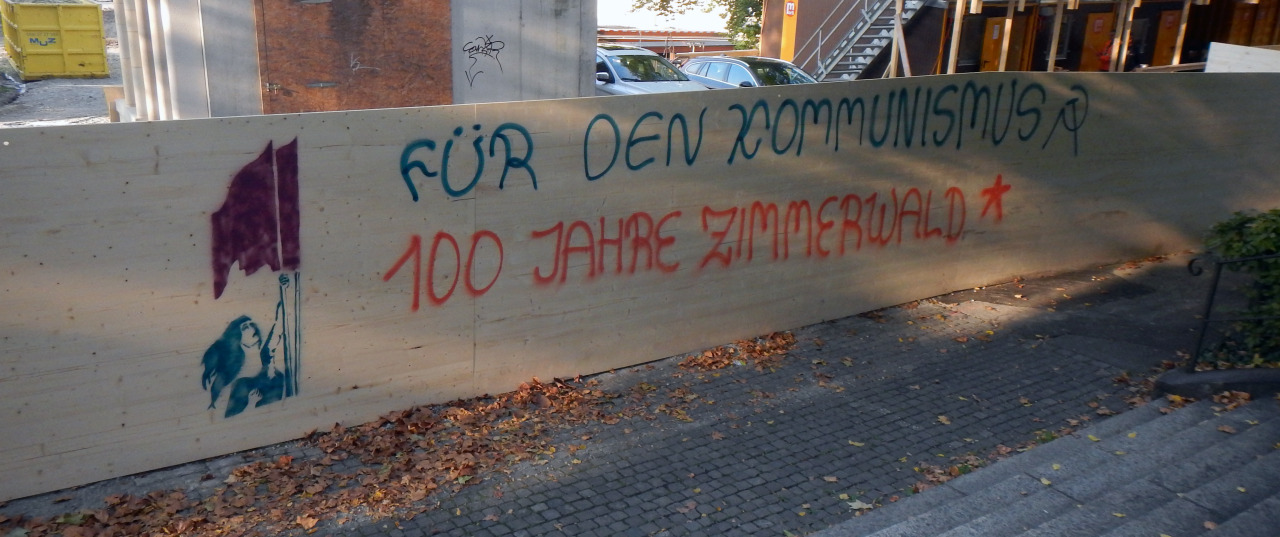 MUZ
FÜR DEN KOMMUNISMUS
100 JAHRE ZIMMERWALD*